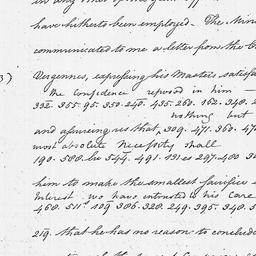 have hitherto been employed. The Mini
communicated to me a letter from the C
3)
Vergennes, expressing his Master's satisfa
the Confidence reposed in him —
332. 355. 95. 350. 240. 435. 260. 162. 340. 2
nothing but
and assuring us that, 309. 471. 360. 47
most absolute Necessity shall
190. 500. be 544. 491. 131 es 297. 400. 30
him to make the smallest sacrifice
Interest. we have intrusted to his Care
460. 511. 109. 306. 320. 249. 395. 340. 5
219. that he has no reason to conclude